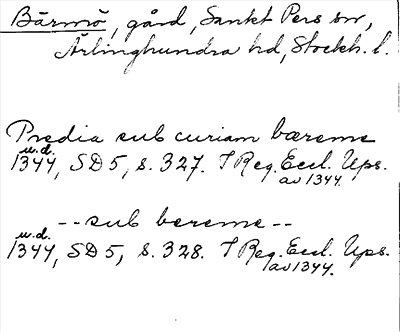 Bärmö, gård, Sankt Pers sn,
Ärlinghundra hd, Stockh. l.
Predia sub curiam bæreme
u.d.
1344, SD 5, s. 327. T Reg. Eccl. Ups.
av 1344.
-- sub bereme --
u.d.
1344, SD 5, s. 328. T Reg. Eccl. Ups.
av 1344.